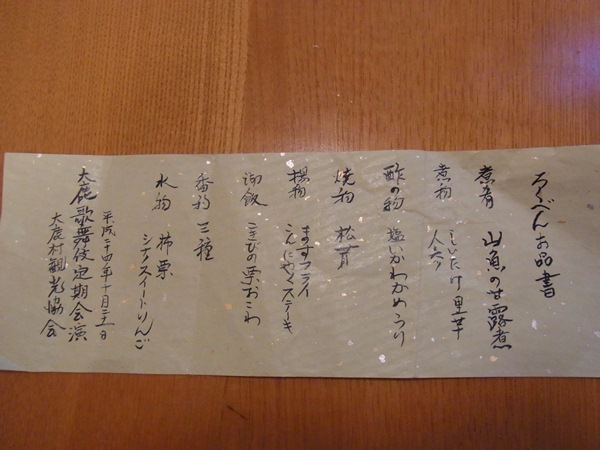 ろくべんお品書
煮肴 山魚の甘露煮
煮物 しいたけ 里芋
人参
酢の物 塩いかわかめうり
焼物 松茸
揚物 ますフライ
こんにやくステーキ
御飯 こきびの栗おこわ
香物 三種
水物 柿 栗
シナノスイートりんご
平成二十四年十月二十一日
大鹿歌舞伎定期公演
大鹿村観光協会